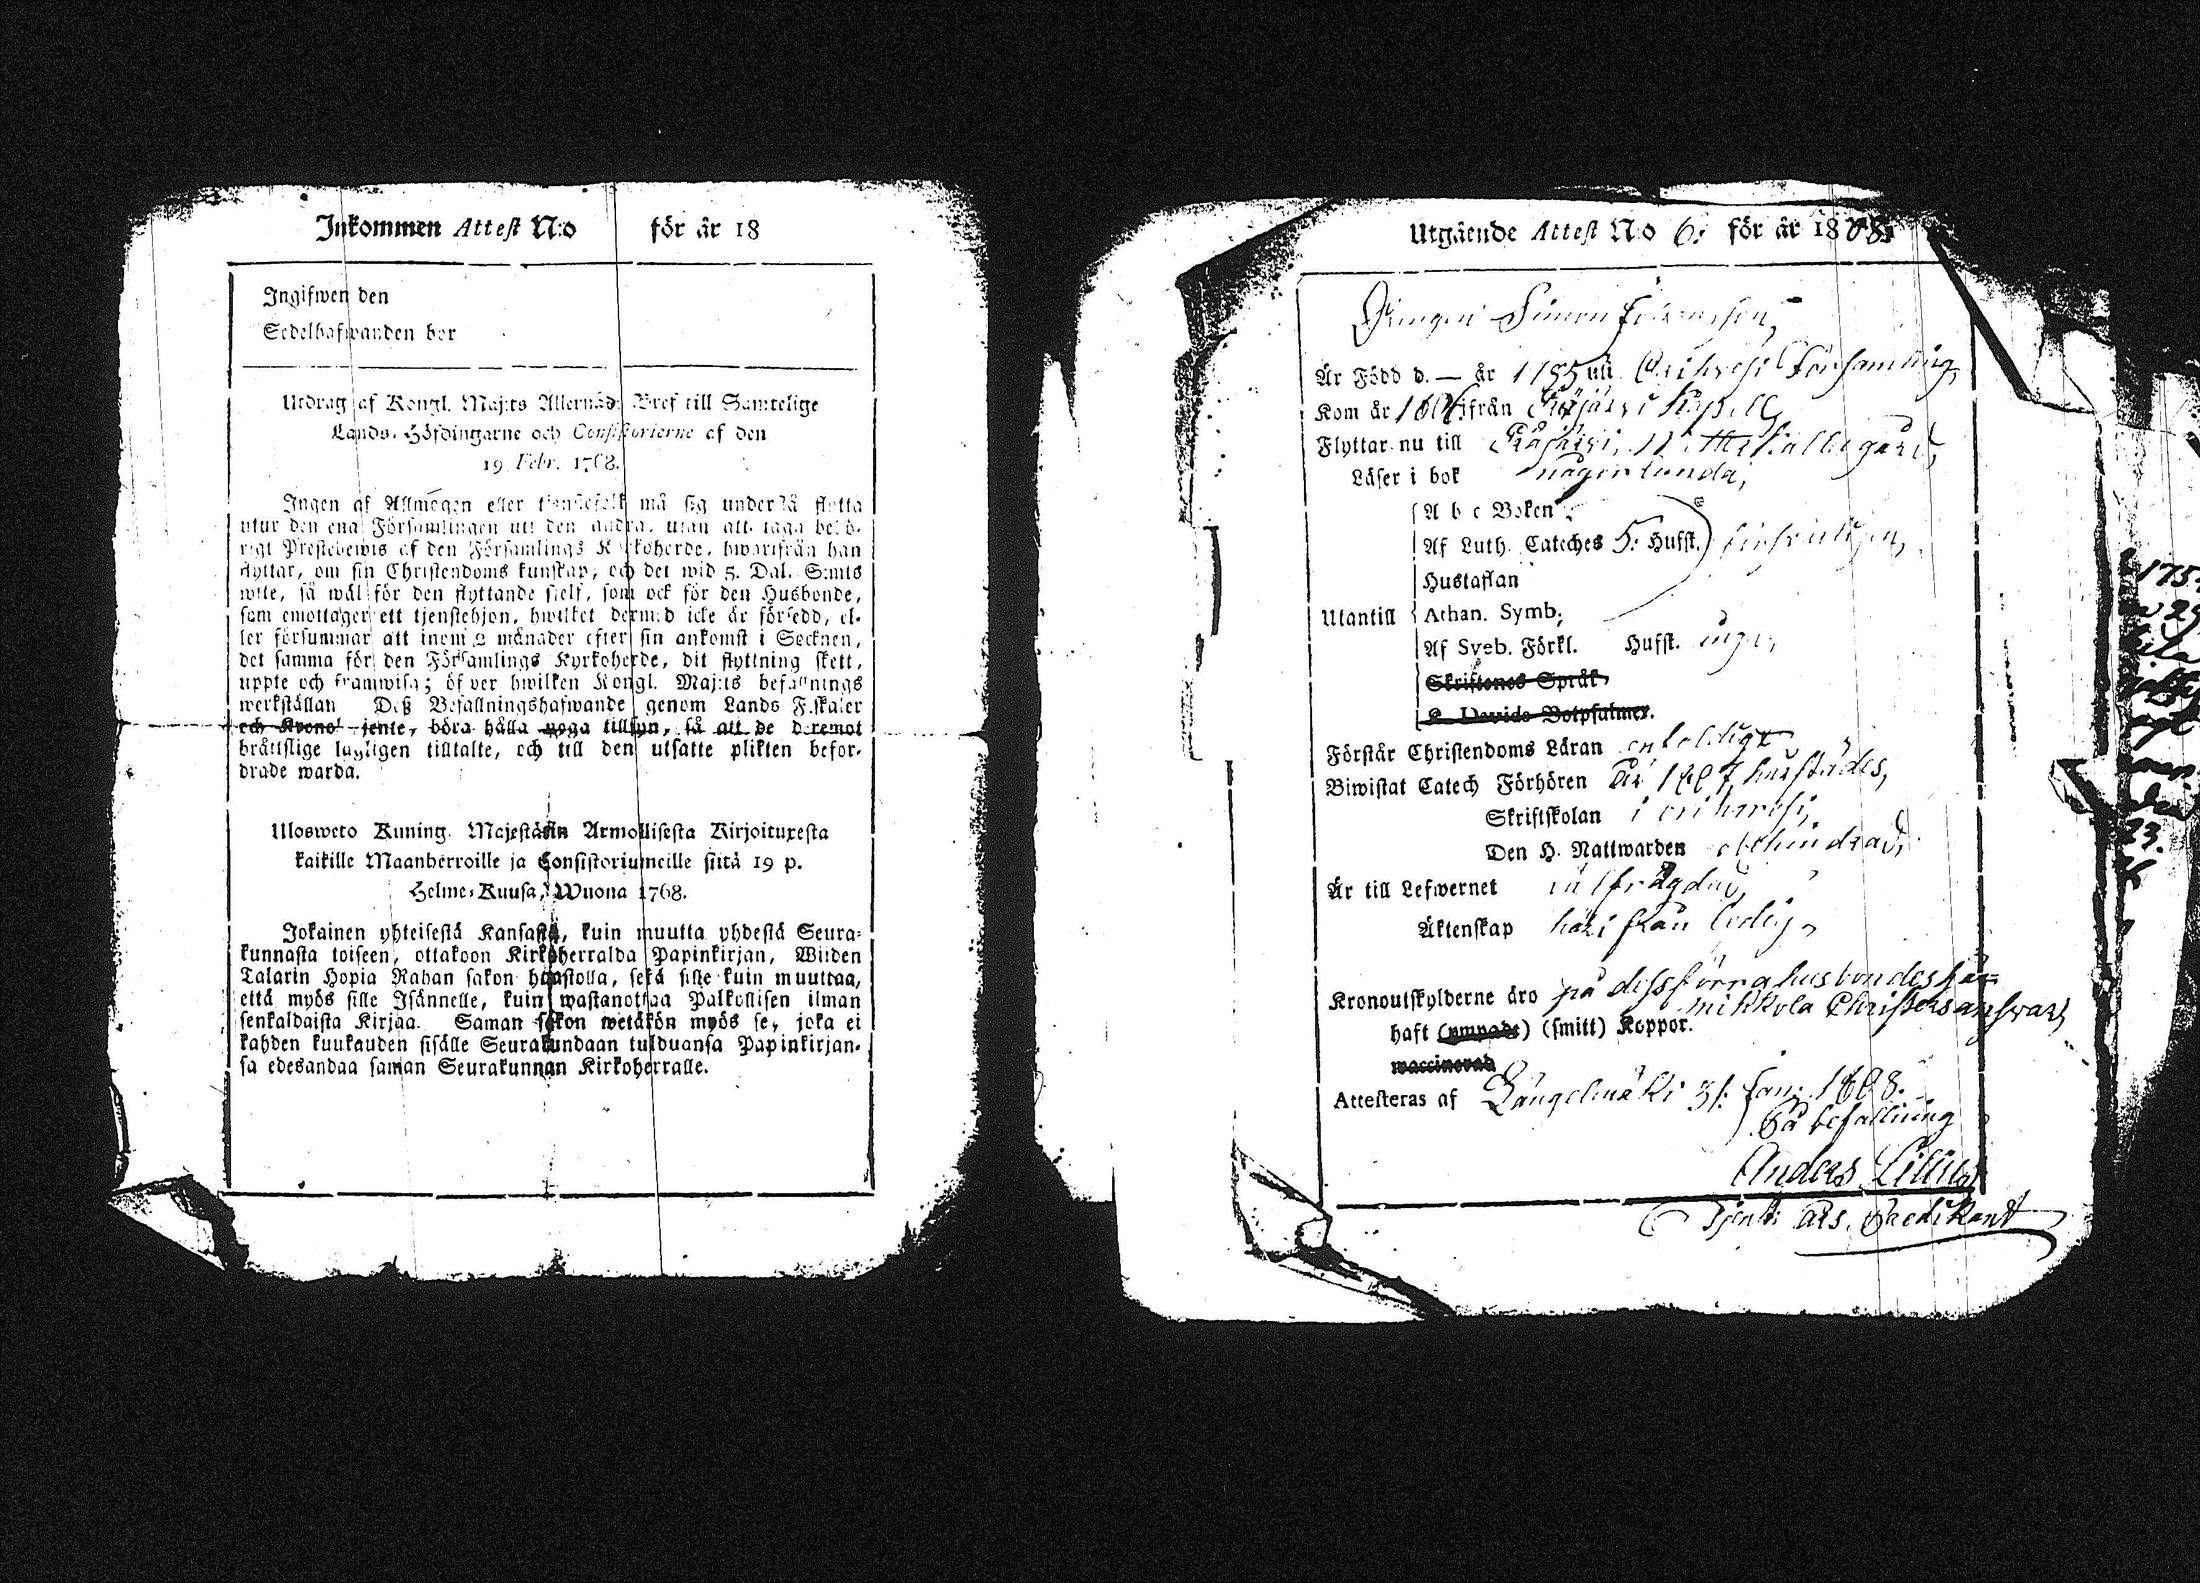 Inkommen Attest N:o för år 18
Ingifwen den
Sedelhafwanden bor
Utdrag af Kongl. Maj:ts Allernåd. Bref till Samtelige
Lands-Höfdingarne och Consistorierne af den
19 Febr. 1768.
Ingen af Allmogen eller tjenstefolk må sig understå flytta
utur den ena Församlingen uti den andra, utan att taga behö-
rigt Prestebewis af den Församlings Kyrkoherde, hwarifrån han
flyttar, om sin Christendoms kunskap, och det wid 5. Dal. S:mts
wite, så wäl för den flyttande sielf, som ock för den Husbonde,
som emottager ett tjenstehjon, hwilket dermed icke är försedd, el-
ler försummar att inom 2 månader efter sin ankomst i Socknen,
det samma för den Församlings Kyrkoherde, dit flyttning skett,
uppte och framwisa; öfwer hwilken Kongl. Maj:ts befallnings
werkställan Deß Befallningshafwande genom Lands Fiskaler
och Krono-tjente, böra hålla noga tillsyn, så att de deremot
bråttslige lagligen tilltalte, och till den utsatte plikten befor-
drade warda.
Ulosweto Kuning. Majestätin Armollisesta Kirjoituxesta
kaikille Maanherroille ja Consistoriumeille siitä 19 p.
Helme-Kuusa, Wuona 1768.
Jokainen yhteisestä Kansasta, kuin muutta yhdestä Seura-
kunnasta toiseen, ottakoon Kirkoherralda Papinkirjan, Wiiden
Talarin Hopia Rahan sakon haastolla, sekä sille kuin muuttaa,
että myös sille Isännelle, kuin wastanottaa Palkollisen ilman
senkaldaista Kirjaa. Saman sakon wetäkön myös se, joka ei
kahden kuukauden sisälle Seurakundaan tulduansa Papinkirjan-
sa edesandaa saman Seurakunnan Kirkoherralle.
Utgående Attest N:o 6: för år 1808:
Drengen Simon
Är Född d. — år 1785 uti Orihvesi Församling,
Kom år från Kapell
Flyttar nu till
Läser i bok någorlunda,
A b c Boken
Af Luth. Cateches 5: Hufst.
Hustaflan
Utantill Athan. Symb.
Af Sveb. Förkl. Hufst. inga,
Skriftenes Språk
K. Davids Botpsalmer.
Förstår Christendoms Läran enfaldigt
Biwistat Catech Förhören År 1807 härstädes,
Skriftskolan i orihwesi,
Den H. Nattwarden obehindrad,
Är till Lefwernet
Äktenskap härifrån ledig,
Kronoutskylderne äro på dess förra husbondes här-
mikkola Christers answar,
haft (ympade) (smitt) Koppor.
waccinerad
Attesteras af Längelmäki 31. Jan: 1808.
På befallning
Anders Lilius
Tjenst: Ars. Prædikant